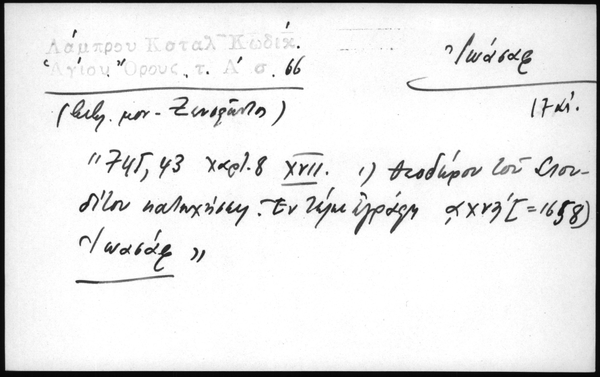 Λάμπρου Καταλ. Κωδίκ.
Ἁγίου Ὄρους, τ. Α΄ σ. 66
Ἰωάσαφ
17 αἰ.
(βιβλ. μον. Ξενοφῶντος)
"745, 43 χαρτ. 8 XVII. 1) Θεοδώρου τοῦ Στου-
δίτου κατηχήσεις. Ἐν τέλει ἐγράφη ͵αχνη΄ [=1658)
Ἰωάσαφ"